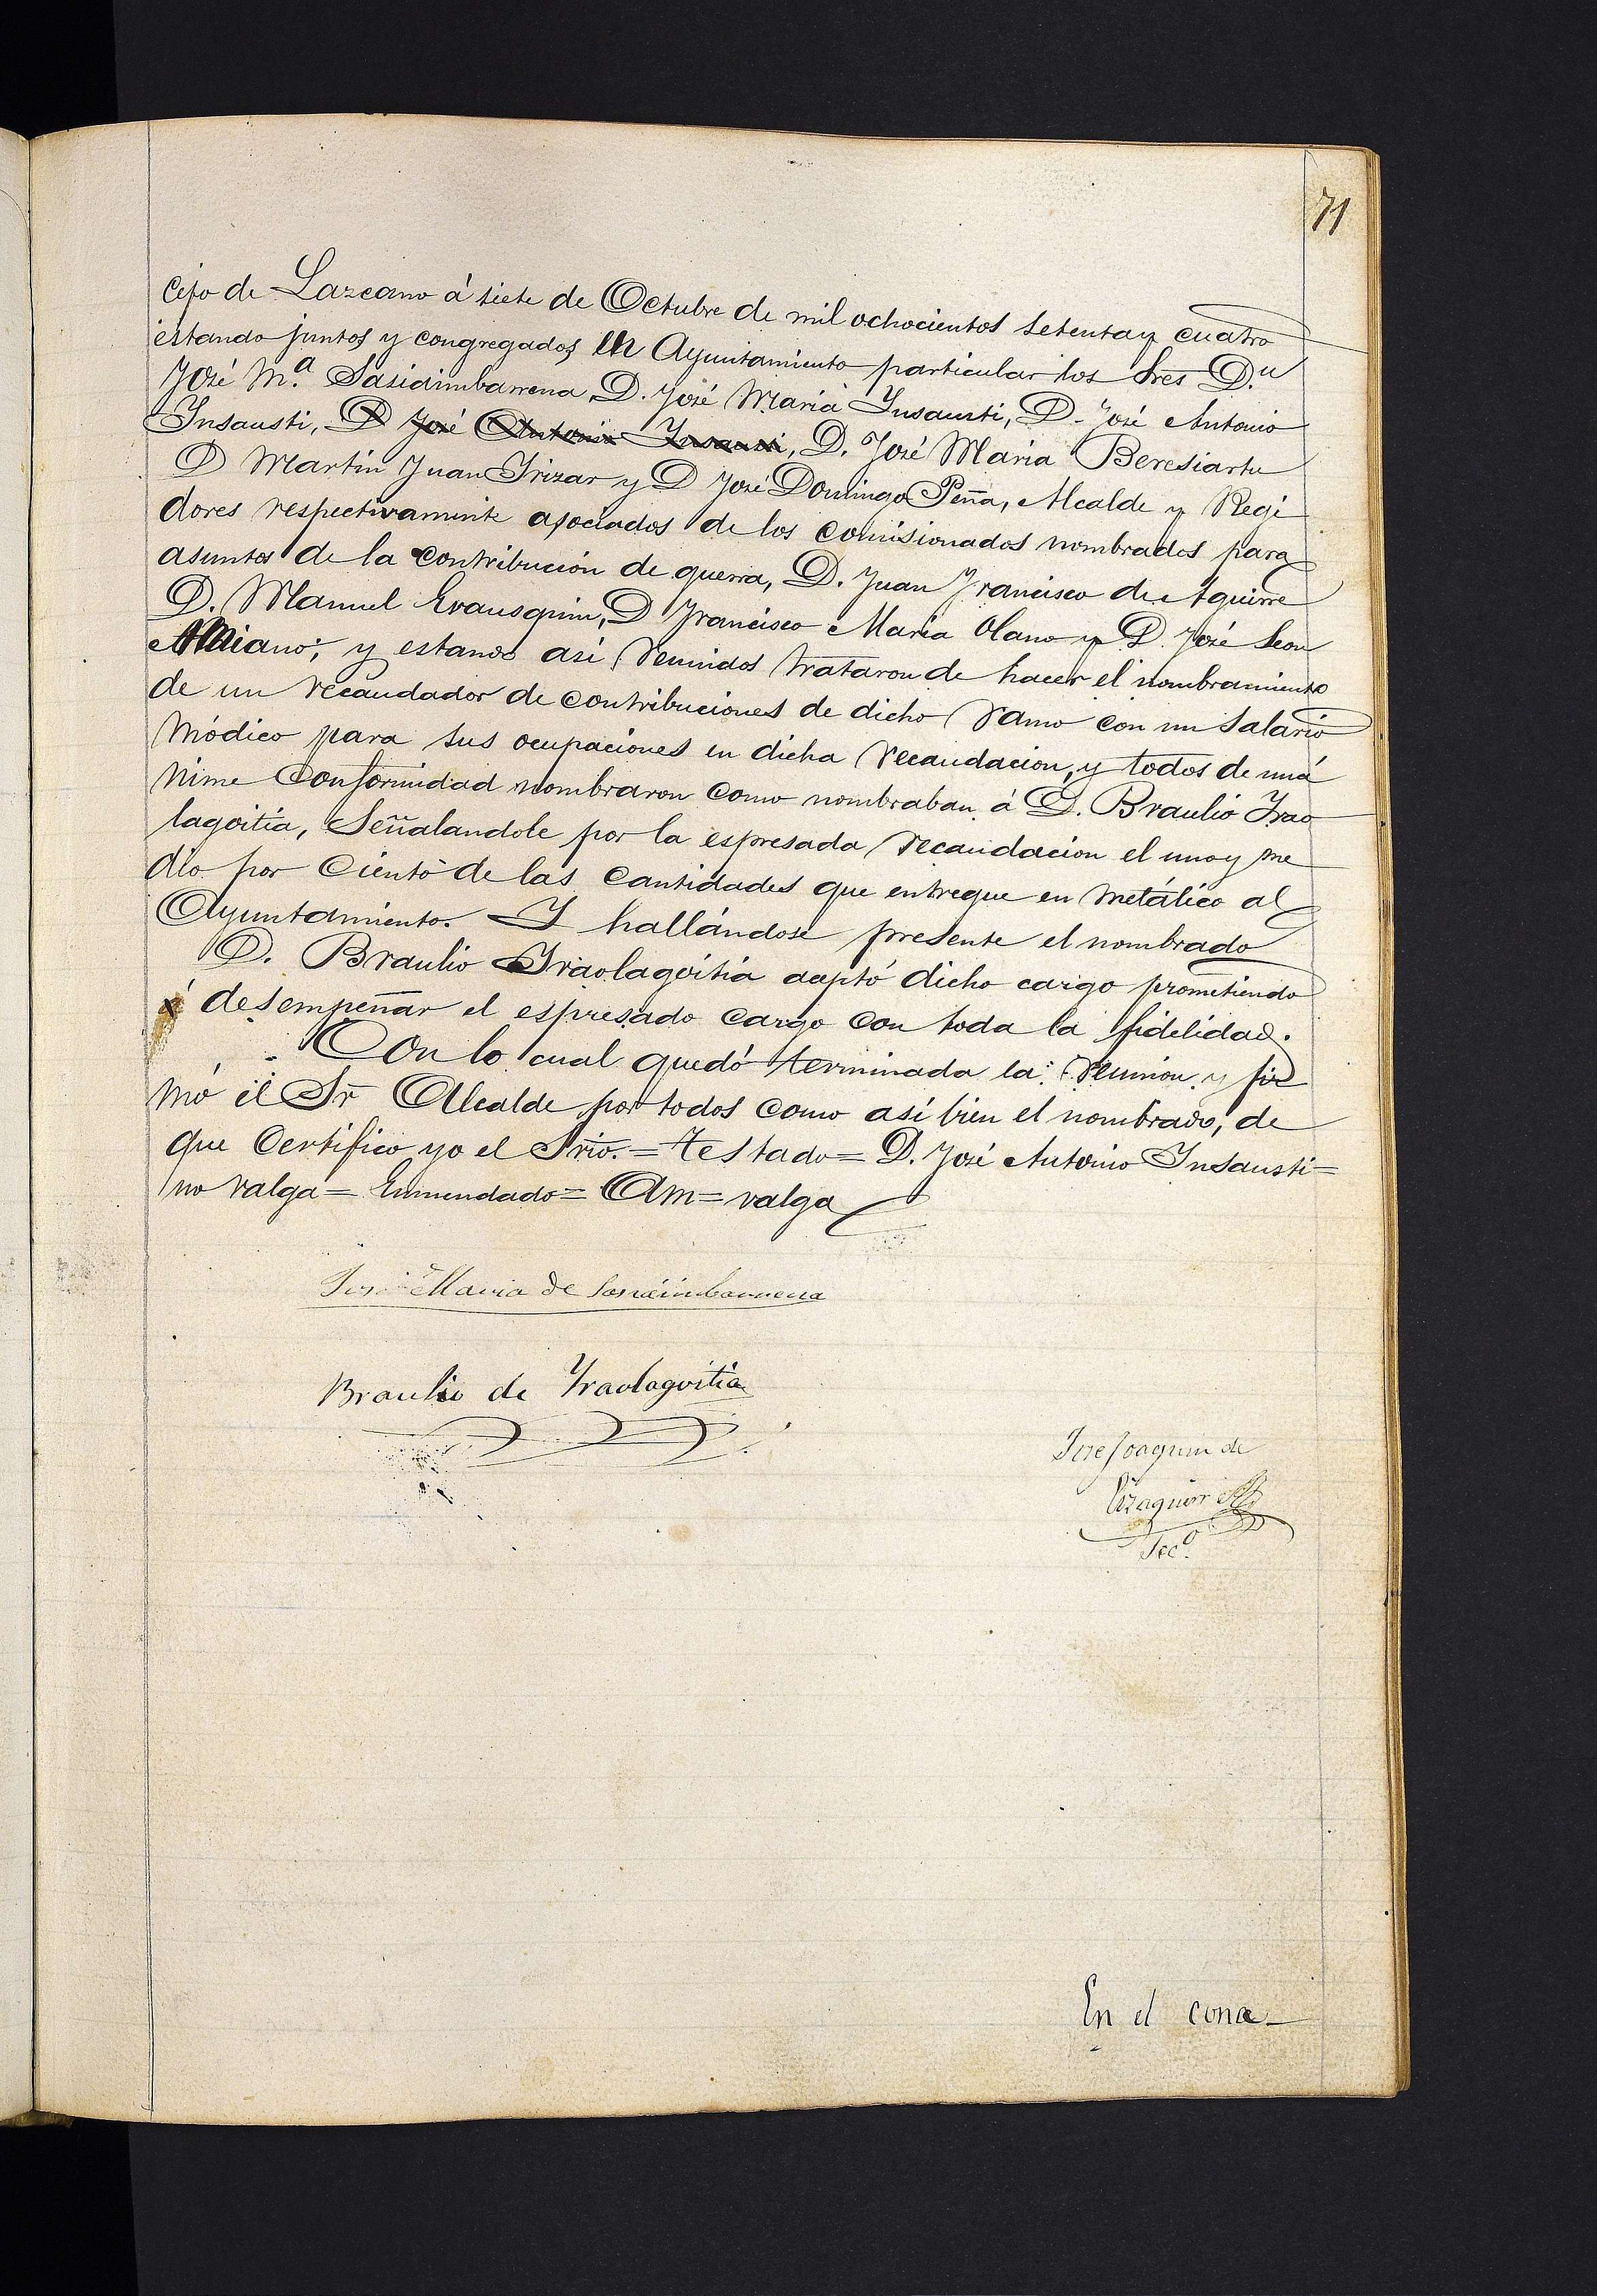 71
cejo de Lazcano á siete de Octubre de mil ochocientos setenta y cuatro
estando juntos y congregados en Ayuntamiento particular los Sres D.n
José M.a Sasiaimbarrena, D. José Maria Insausti, D. José Antonio
Insausti, D José Antonio Insausti, D. José Maria Beresiartu
D Martin Juan Irizar y D José Domingo Peña, Alcalde y Regi
dores respectivamente asociados de los comisionados nombrados para
asuntos de la contribución de guerra, D. Juan Francisco de Aguirre
D. Manuel Erausquin, D Francisco Maria Olano y D. José Leon
Amiano; y estando así reunidos trataron de hacer el nombramiento
de un recaudador de contribuciones de dicho ramo con un salario
módico para sus ocupaciones en dicha recaudacion, y todos de uná
nime conformidad nombraron como nombraban á D. Braulio Yrao
lagoitia, Señalandole por la espresada recaudacion el uno y me
dio por ciento de las cantidades que entregue en metálico al
Ayuntamiento. Y hallándose presente el nombrado
D. Braulio Iraolagoitia aceptó dicho cargo prometiendo
á desempeñar el espresado cargo con toda la fidelidad.
Con lo cual quedó terminada la reunion y fir
mó el Sr Alcalde por todos como así bien el nombrado, de
que Certifico yo el Srio. = testado = D. José Antonio Insausti =
no valga = Enmendado = Am = valga
José Maria de Sasiaimbarrena
Braulio de Yraolagoitia
José Joaquin de
Eizaguirre
Sec.o
En el conce-